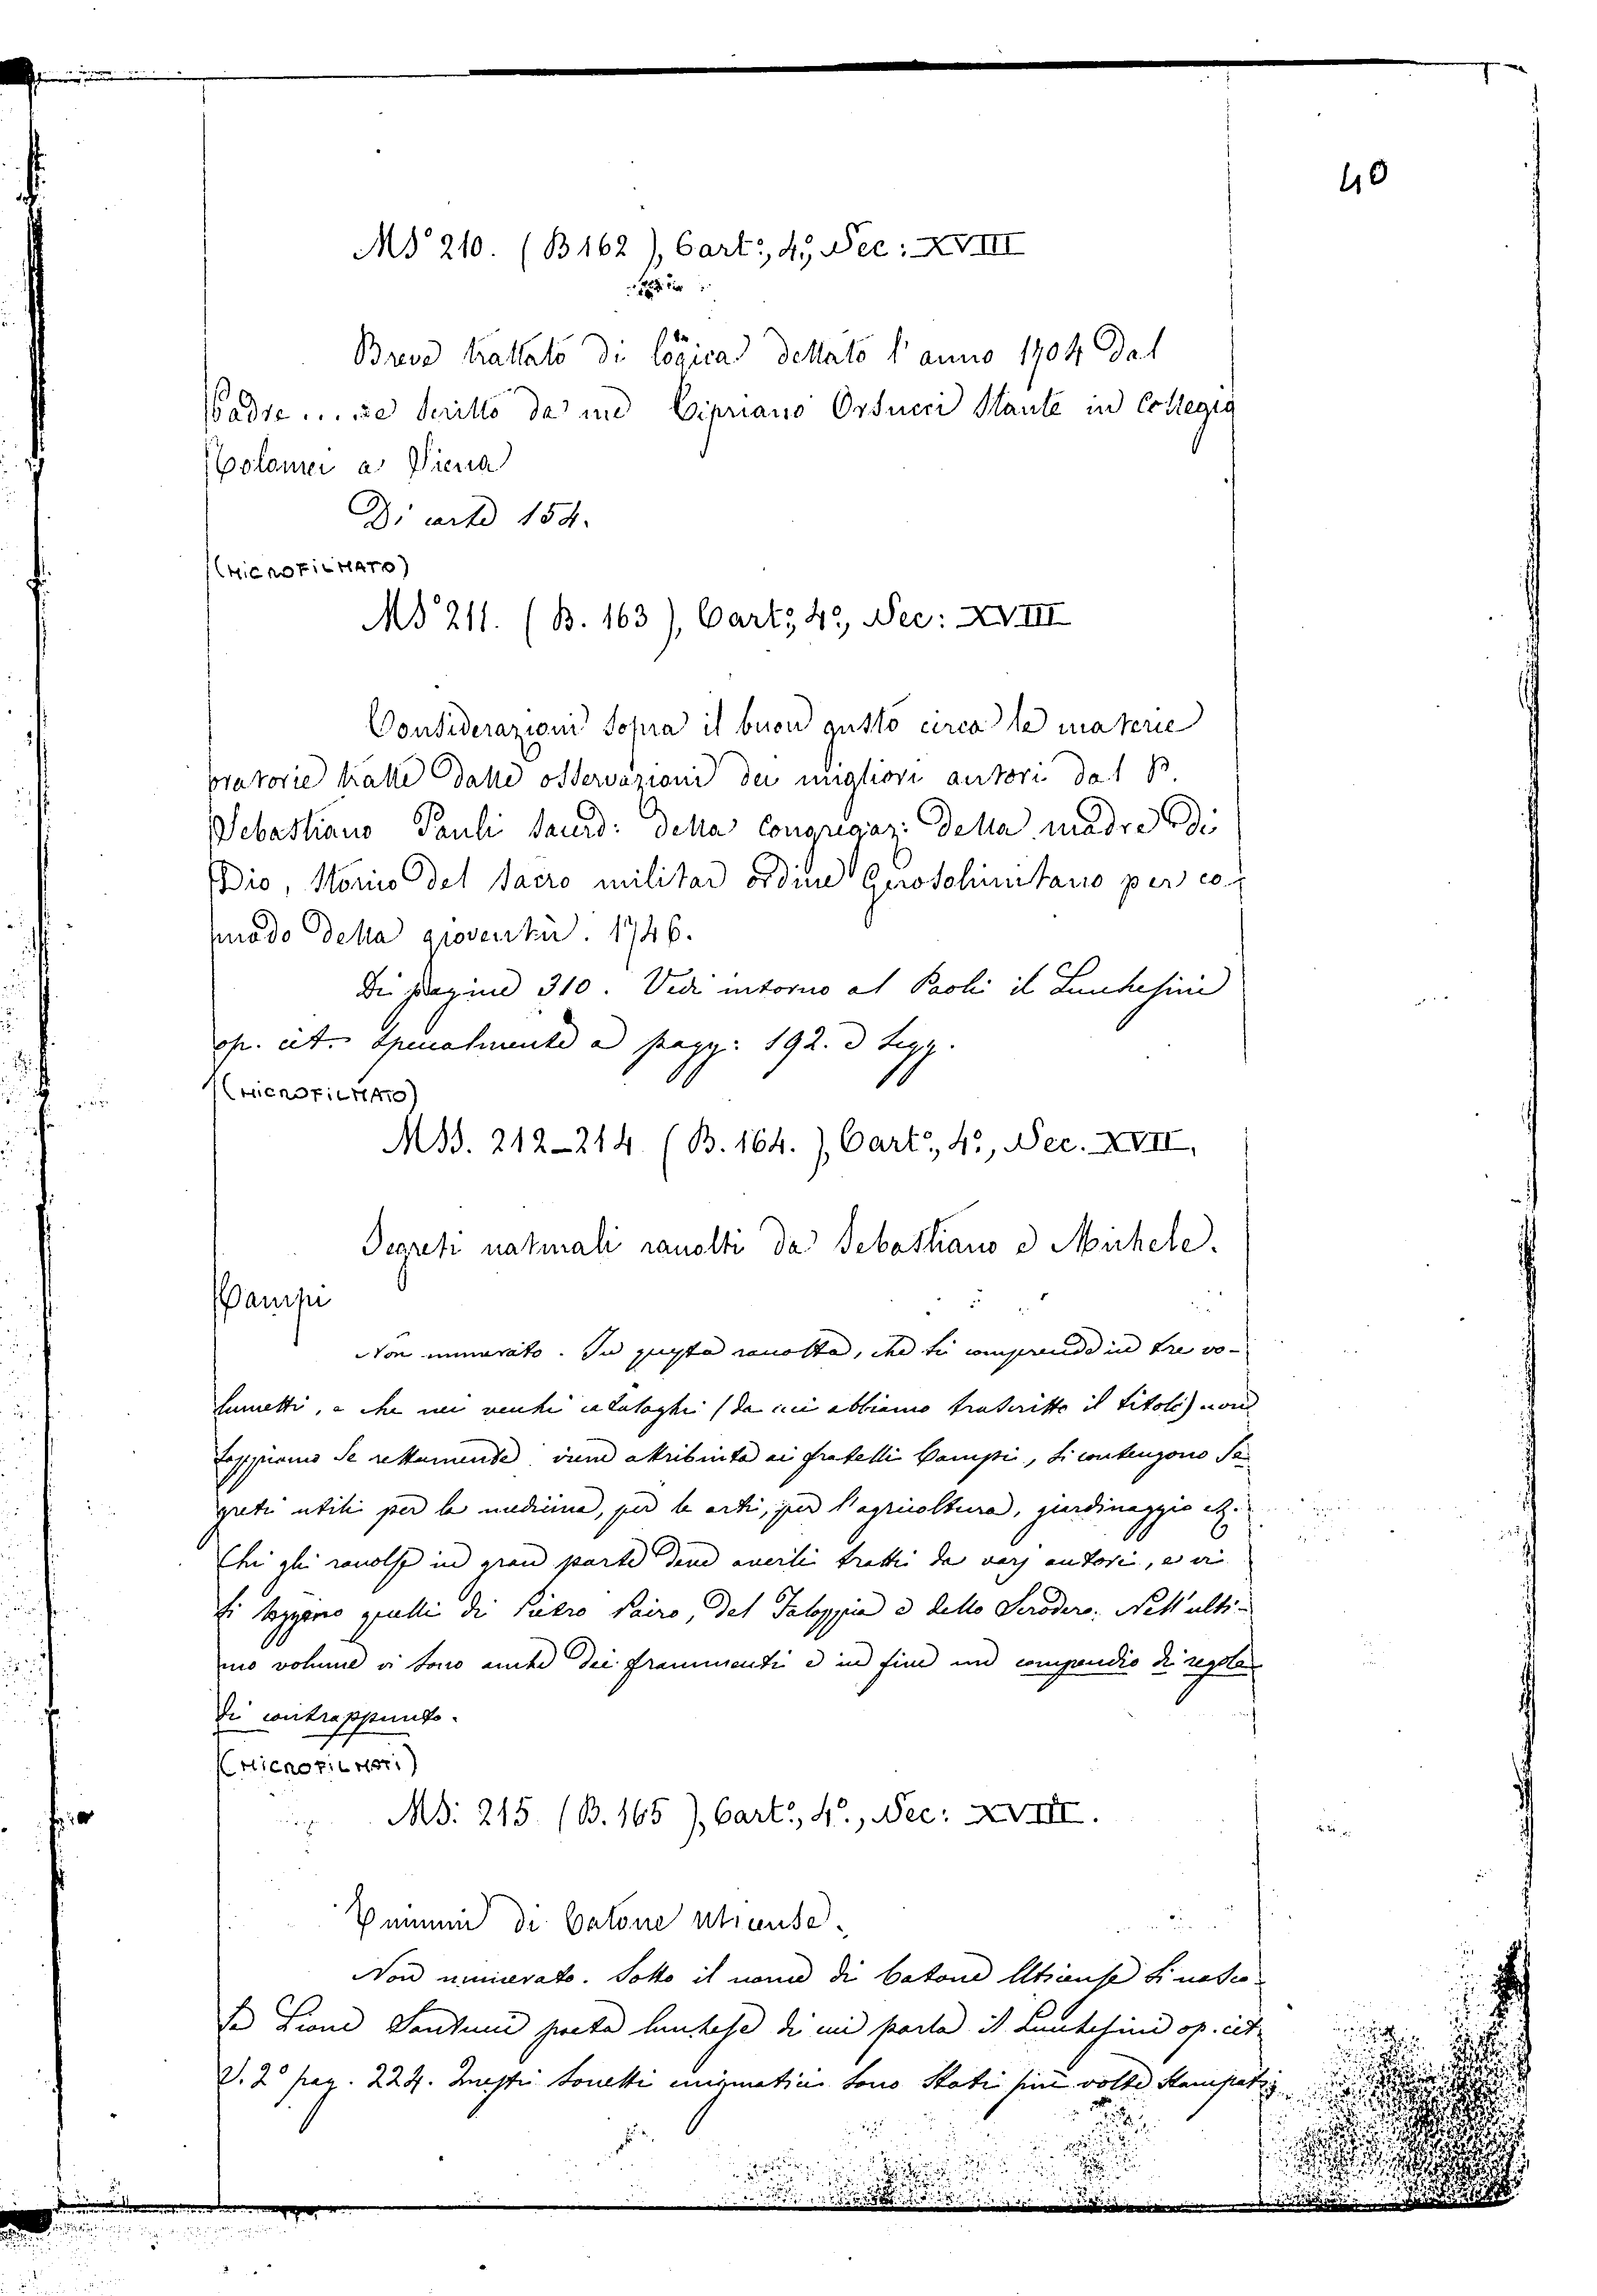 40
MS 210. (B 162), Cart:, 4º, Sec: XVIII
Breve trattato di logica dettato l'anno 1704 dal
Padre ... se scritto da me Cipriano Orsucci stante in Collegio
Tolomei a Siena
Di carte 154.
(MICROFILMATO)
MS 211. (B. 163), Cart:, 4º, Sec: XVIII
Considerazioni sopra il buon gusto circa le materie
oratorie tratte dalle osservazioni dei migliori autori dal P.
Sebastiano Pauli sacerd: della Congregaz: della madre di
Dio, storico del sacro militar ordine Gerosolimitano per co-
modo della gioventù. 1746.
Di pagine 310. Vedi intorno al Paoli il Lucchesini
op. cit. specialmente a pagg: 192. e segg.
(MICROFILMATO)
MSS. 212-214 (B. 164.), Cart:, 4º, Sec. XVII,
Segreti naturali raccolti da Sebastiano e Michele
Campi
Non numerato. In questa raccolta, che si comprende in tre vo-
lumetti, e che nei vecchi cataloghi (da cui abbiamo trascritto il titolo) non
sappiamo se rettamente, viene attribuita ai fratelli Campi, si contengono se
greti utili per la medicina, per le arti, per l'agricoltura, giardinaggio etc.
Chi gli raccolse in gran parte deve averli tratti da varj autori, e vi
si leggono quelli di Pietro Pairo, del Faloppia e dello Scrodero. Nell'ulti-
mo volume vi sono anche dei frammenti e in fine un compendio di regole
di contrappunto.
(MICROFILMATI)
MS: 215 (B. 165), Cart:, 4º, Sec: XVIII.
Enimmi di Catone uticense.
Non numerato. Sotto il nome di Catone Uticense si nasco-
se Lione Santucci poeta lucchese di cui parla il Lucchesini op. cit
V. 2º pag. 224. Questi sonetti enigmatici sono stati più volte stampati;